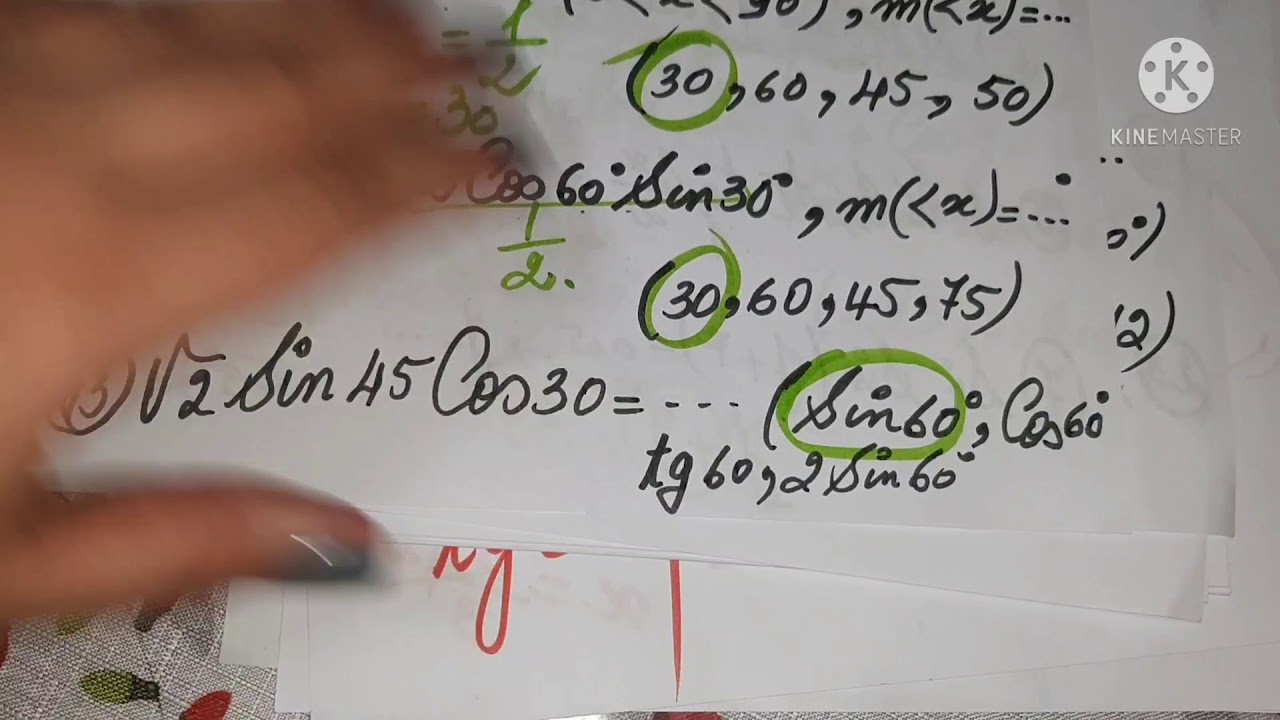 = 1/2 (0<x<90), m(<x)=...
(30, 60, 45, 50)
30
Cos 60° Sin 30°, m(<x)=...°
1/2.
(30, 60, 45, 75)
3) √2 Sin 45 Cos 30 = --- (Sin 60°, Cos 60°
tg 60, 2 Sin 60°
KINEMASTER